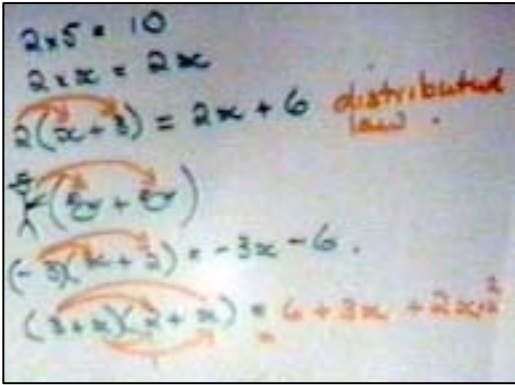 2 x 5 = 10
2 x x = 2x
2(x + 3) = 2x + 6 distributed
law.
(-3)(x + 2) = -3x - 6.
(3 + x)(2 + x) = 6 + 3x + 2x